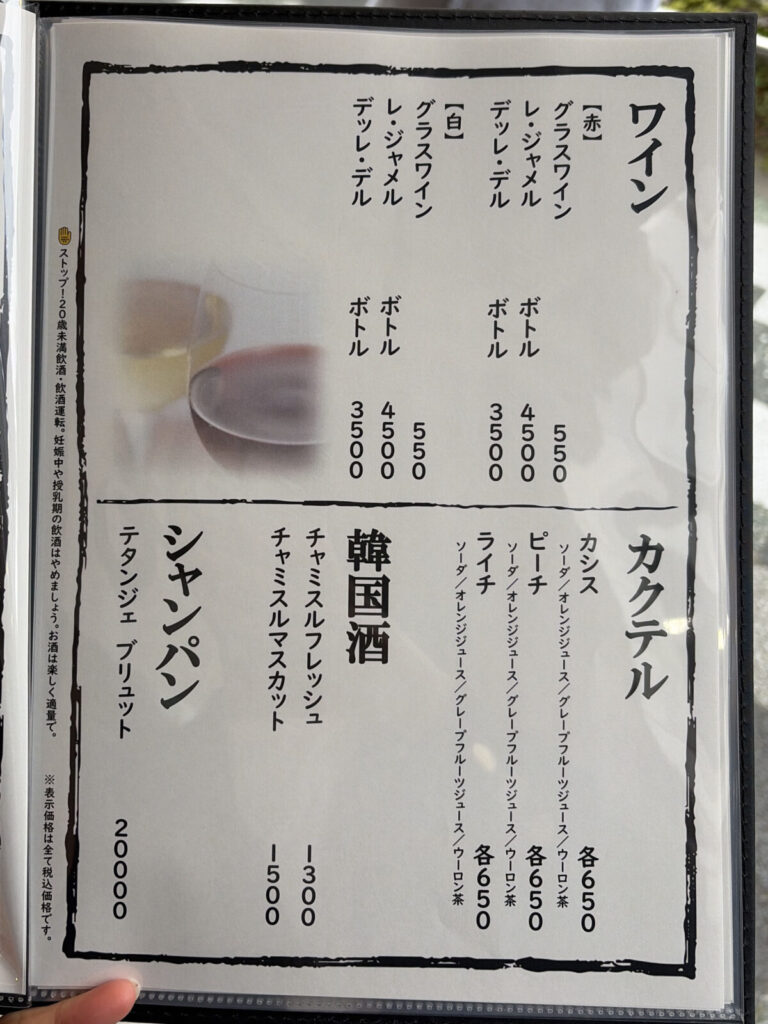 ワイン
【赤】
グラスワイン 550
レ・ジャメル ボトル 4500
デッレ・デル ボトル 3500
【白】
グラスワイン 550
レ・ジャメル ボトル 4500
デッレ・デル ボトル 3500
カクテル
カシス 各650
ソーダ/オレンジジュース/グレープフルーツジュース/ウーロン茶
ピーチ 各650
ソーダ/オレンジジュース/グレープフルーツジュース/ウーロン茶
ライチ 各650
ソーダ/オレンジジュース/グレープフルーツジュース/ウーロン茶
韓国酒
チャミスルフレッシュ 1300
チャミスルマスカット 1500
シャンパン
テタンジェ ブリュット 20000
ストップ!20歳未満飲酒・飲酒運転。妊娠中や授乳期の飲酒はやめましょう。お酒は楽しく適量で。 ※表示価格は全て税込価格です。